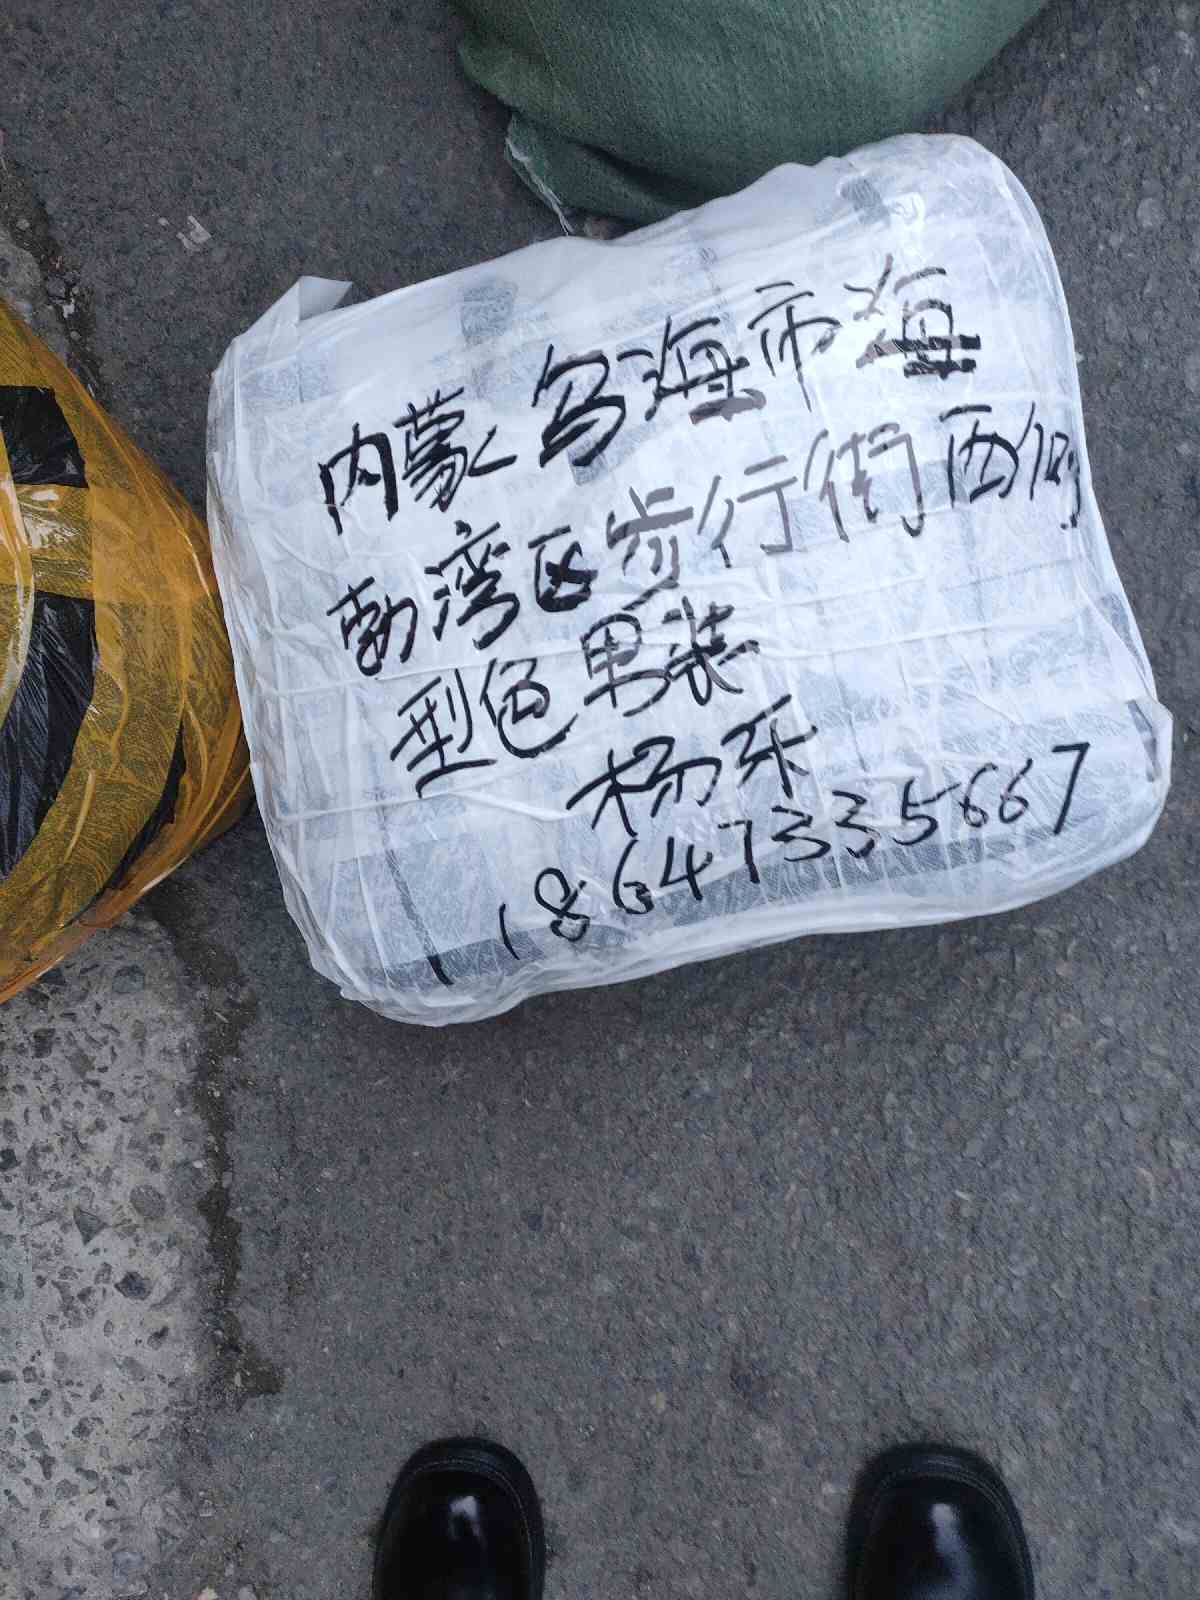 内蒙乌海市海
勃湾区步行街西侧
型色男装
杨乐
18647335667